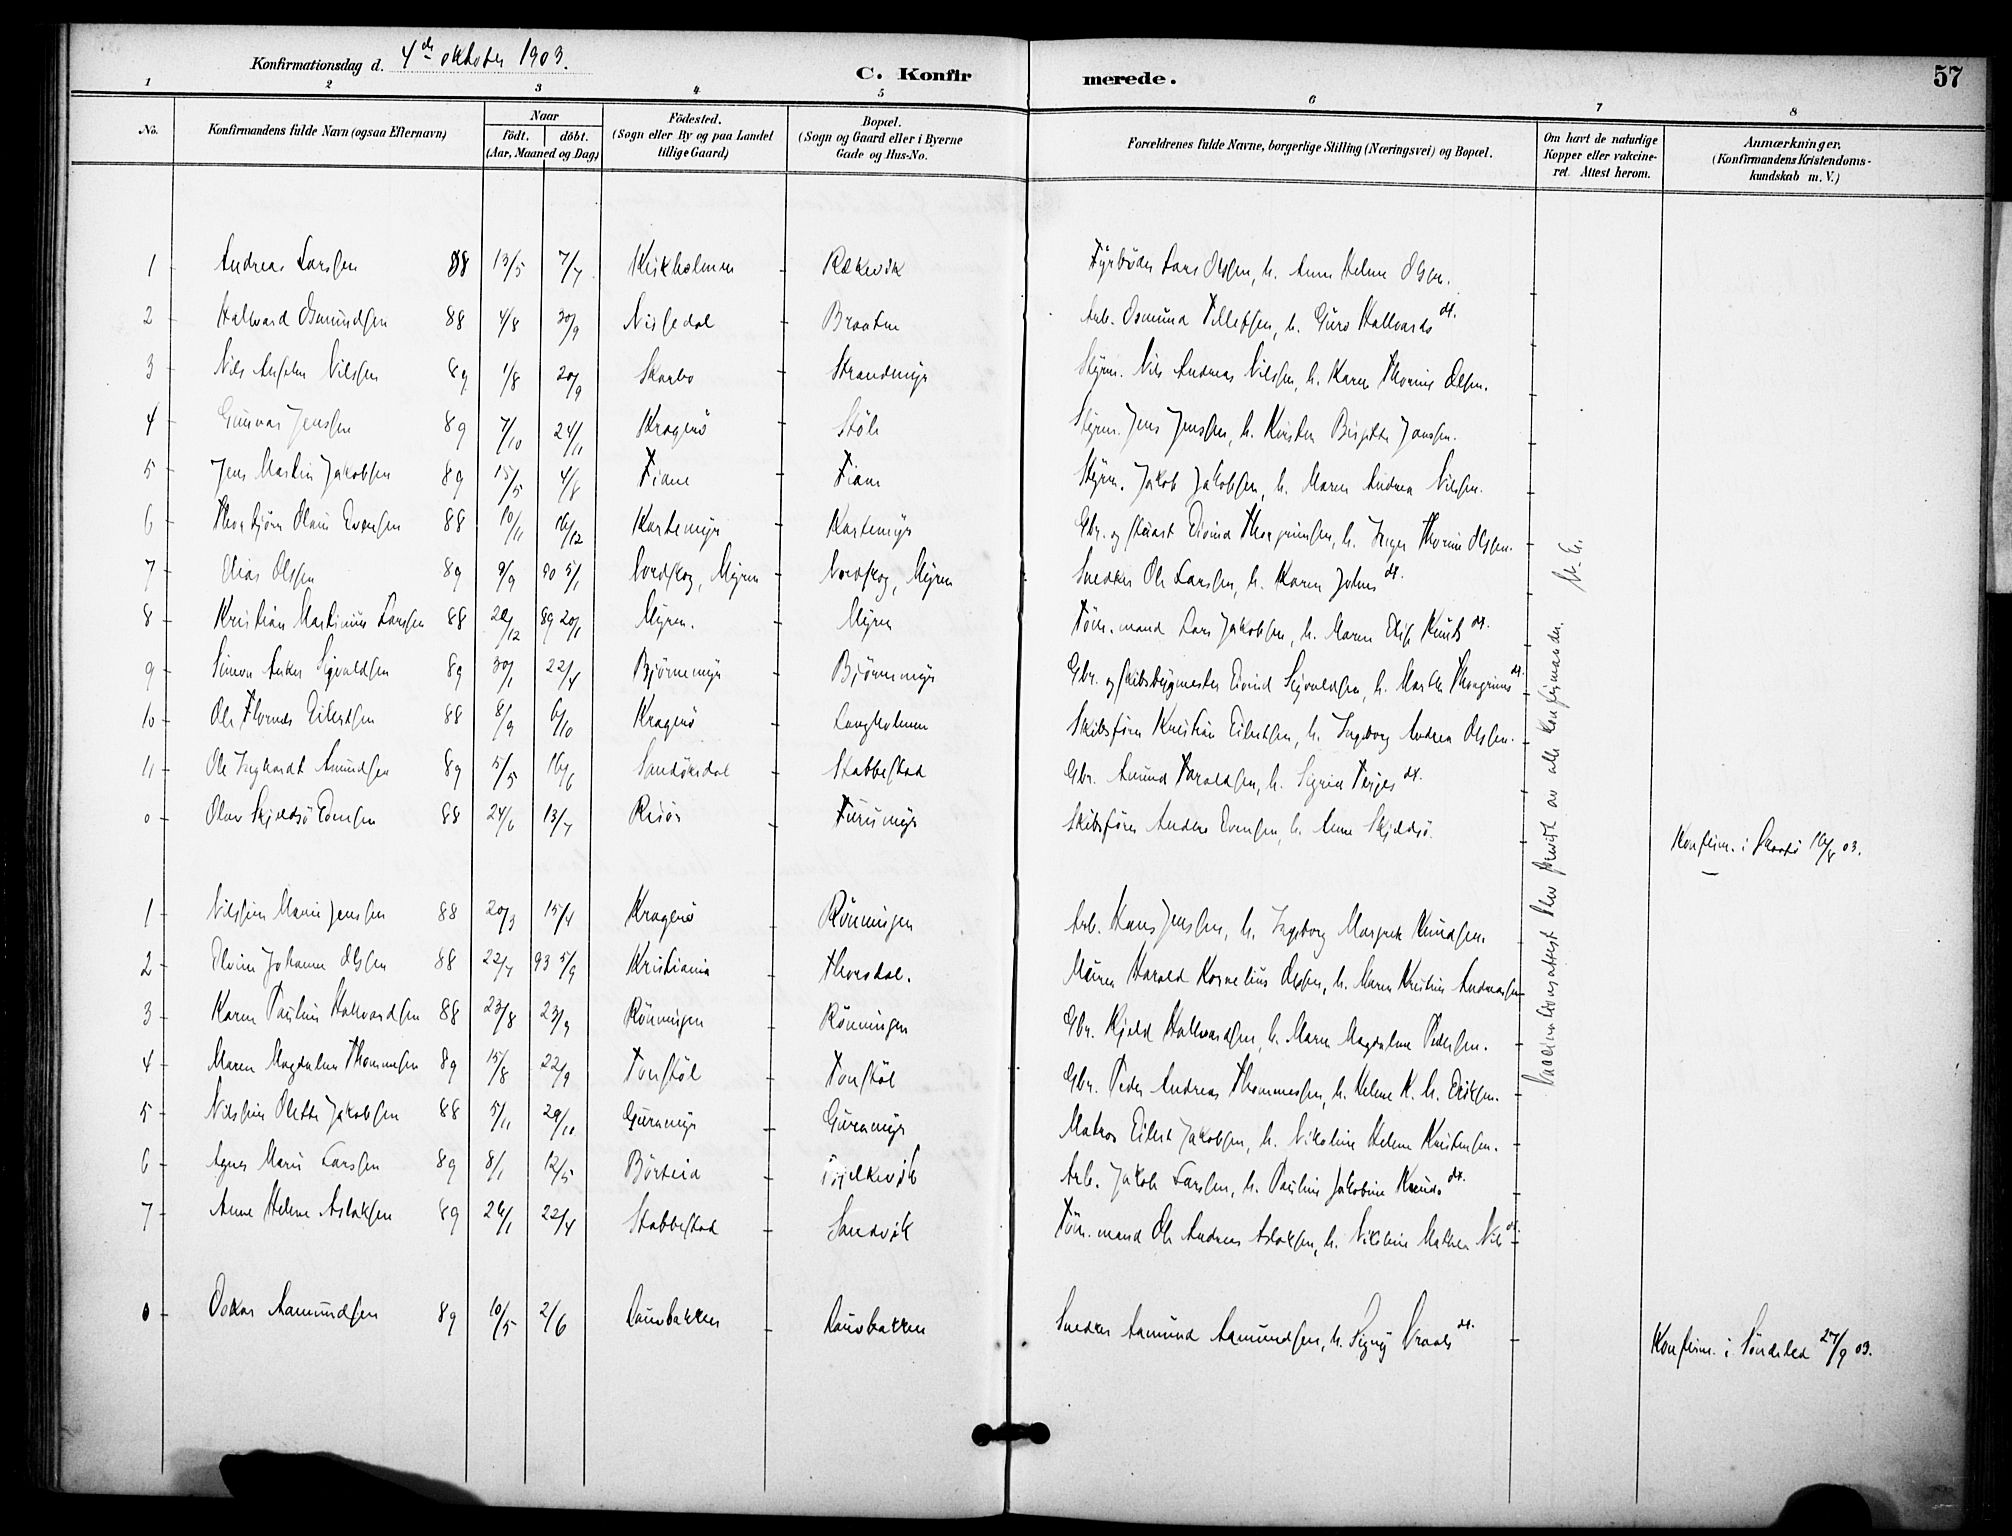 Konfirmationsdag d. 4de oktober 1903.
C. Konfirmerede.
57
1 2 3 4 5 6 7 8
No. Konfirmandens fulde Navn (ogsaa Efternavn) Naar födt. döbt. (Aar, Maaned og Dag) Födested. (Sogn eller By og paa Landet tillige Gaard) Bopæl. (Sogn og Gaard eller i Byerne Gade og Hus-No. Forældrenes fulde Navne, borgerlige Stilling (Næringsvei) og Bopæl. Om havt de naturlige Kopper eller vakcineret. Attest herom. Anmærkninger. (Konfirmandens Kristendomskundskab m. V.)
1 Andreas Larssen 88 13/5 7/7 Kirkholmen Rækevik Fyrbøder Lars Olssen, h. Anne Helene Olsen.
2 Halvard Osmundsen 88 4/8 30/9 Nissedal Braaten Arb. Osmund Tellefsen, h. Guro Hallvards dt.
3 Nils Anselm Nilssen 89 1/8 20/9 Skarbo Strandmyr Styrm. Nils Andreas Nilssen, h. Karen Thorine Olsen.
4 Gunnar Jenssen 89 7/10 24/11 Kragerø Støle Styrm. Jens Jenssen, h. Kirsten Birgitte Janssen.
5 Jens Martin Jakobsen 89 15/5 4/8 Fiane Fiane Styrm. Jakob Jakobsen, h. Maren Andrea Nilssen.
6 Thorbjørn Olaus Evensen 88 10/11 16/12 Kartemyr Kartemyr Gbr. og stuart Eivind Thorgrimsen, h. Inger Thorine Olssen.
7 Olias Olssen 89 9/9 90 5/1 Nordskog, Myren Nordskog, Myren Snedker Ole Larssen, h. Karen Johns dt.
8 Kristian Martinius Larssen 88 22/12 89 20/1 Myren. Myren Tøm.mand Lars Jakobsen, h. Maren Elise Knuts dt.
9 Simon Anker Sigvaldsen 89 30/1 22/4 Bjørnemyr Bjørnemyr Gbr. og skibsbygmester Eivind Sigvaldsen, h. Marthe Thorgrims dt.
10 Ole Thomas Eilertsen 88 8/9 6/10 Kragerø Langholmen Skibsfører Kristian Eilertsen, h. Ingeborg Andrea Olssen.
11 Ole Inghardt Amundsen 89 5/5 16/6 Sandøkedal Stabbestad Gbr. Amund Haraldsen, h. Sigrid Terjes dt.
0 Olav Skjeldsø Evensen 88 24/6 13/7 Risør Furumyr Skibsfører Anders Evensen, h. Anne Skjeldsø. Konfirm. i Skaatø 16/8 03.
1 Nilssine Marie Jenssen 88 20/3 15/4 Kragerø Rønningen Arb. Hans Jenssen, h. Ingeborg Margrete Knudsen.
2 Elvine Johanne Olssen 88 22/7 93 5/9 Kristiania Thorsdal. Murer Harald Kornelius Olssen, h. Maren Kristine Andreassen
3 Karen Pauline Hallvardsen 88 23/8 23/9 Rønningen Rønningen Gbr. Kjeld Hallvardsen, h. Maren Magdalene Pedersen.
4 Maren Magdalene Thommesen 89 15/8 22/9 Tonstøl Tonstøl Gbr. Peder Andreas Thommessen, h. Helene K. M. Eriksen.
5 Nilssine Olette Jakobsen 88 5/11 29/10 Guramyr Guramyr Matros Eilert Jakobsen, h. Nikoline Helene Kristensen.
6 Agnes Marie Larssen 89 8/1 12/5 Børteid Bjelkevik Arb. Jakob Larssen, h. Pauline Jakobine Knuds dt.
7 Anne Helene Aslaksen 89 26/1 22/4 Stabbestad Sandvik Tøm.mand Ole Andreas Aslaksen, h. Nikoline Mathea Nils dt.
0 Oskar Aamundsen 89 10/5 2/6 Laurbakken Laurbakken Snedker Aamund Aamundsen, h. Signy Vraals dt. Konfirm. i Søndeled 27/9 03.
Vaccinationsattest blev forevist av alle konfirmander. M. E.